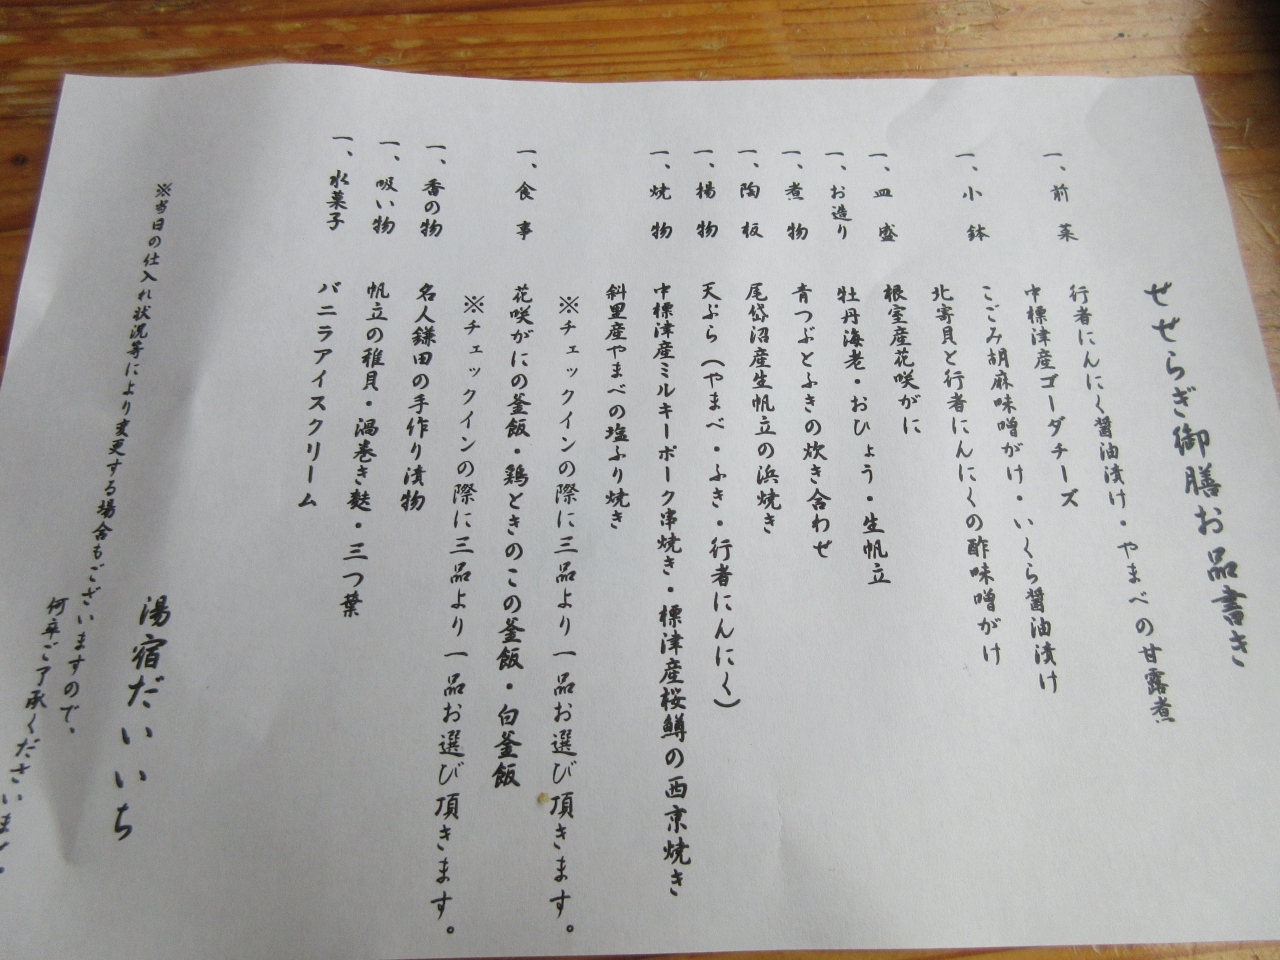 せせらぎ御膳お品書き
一、前菜　行者にんにく醤油漬け・やまべの甘露煮
中標津産ゴーダチーズ
一、小鉢　こごみ胡麻味噌がけ・いくら醤油漬け
北寄貝と行者にんにくの酢味噌がけ
一、皿盛　根室産花咲がに
一、お造り　牡丹海老・おひょう・生帆立
一、煮物　青つぶとふきの炊き合わせ
一、陶板　尾岱沼産生帆立の浜焼き
一、揚物　天ぷら（やまべ・ふき・行者にんにく）
一、焼物　中標津産ミルキーポーク串焼き・標津産桜鱒の西京焼き
斜里産やまべの塩ふり焼き
※チェックインの際に三品より一品お選び頂きます。
一、食事　花咲がにの釜飯・鶏ときのこの釜飯・白釜飯
※チェックインの際に三品より一品お選び頂きます。
一、香の物　名人鎌田の手作り漬物
一、吸い物　帆立の稚貝・渦巻き麩・三つ葉
一、水菓子　バニラアイスクリーム
湯宿だいいち
※当日の仕入れ状況等により変更する場合もございますので、
何卒ご了承くださいませ。